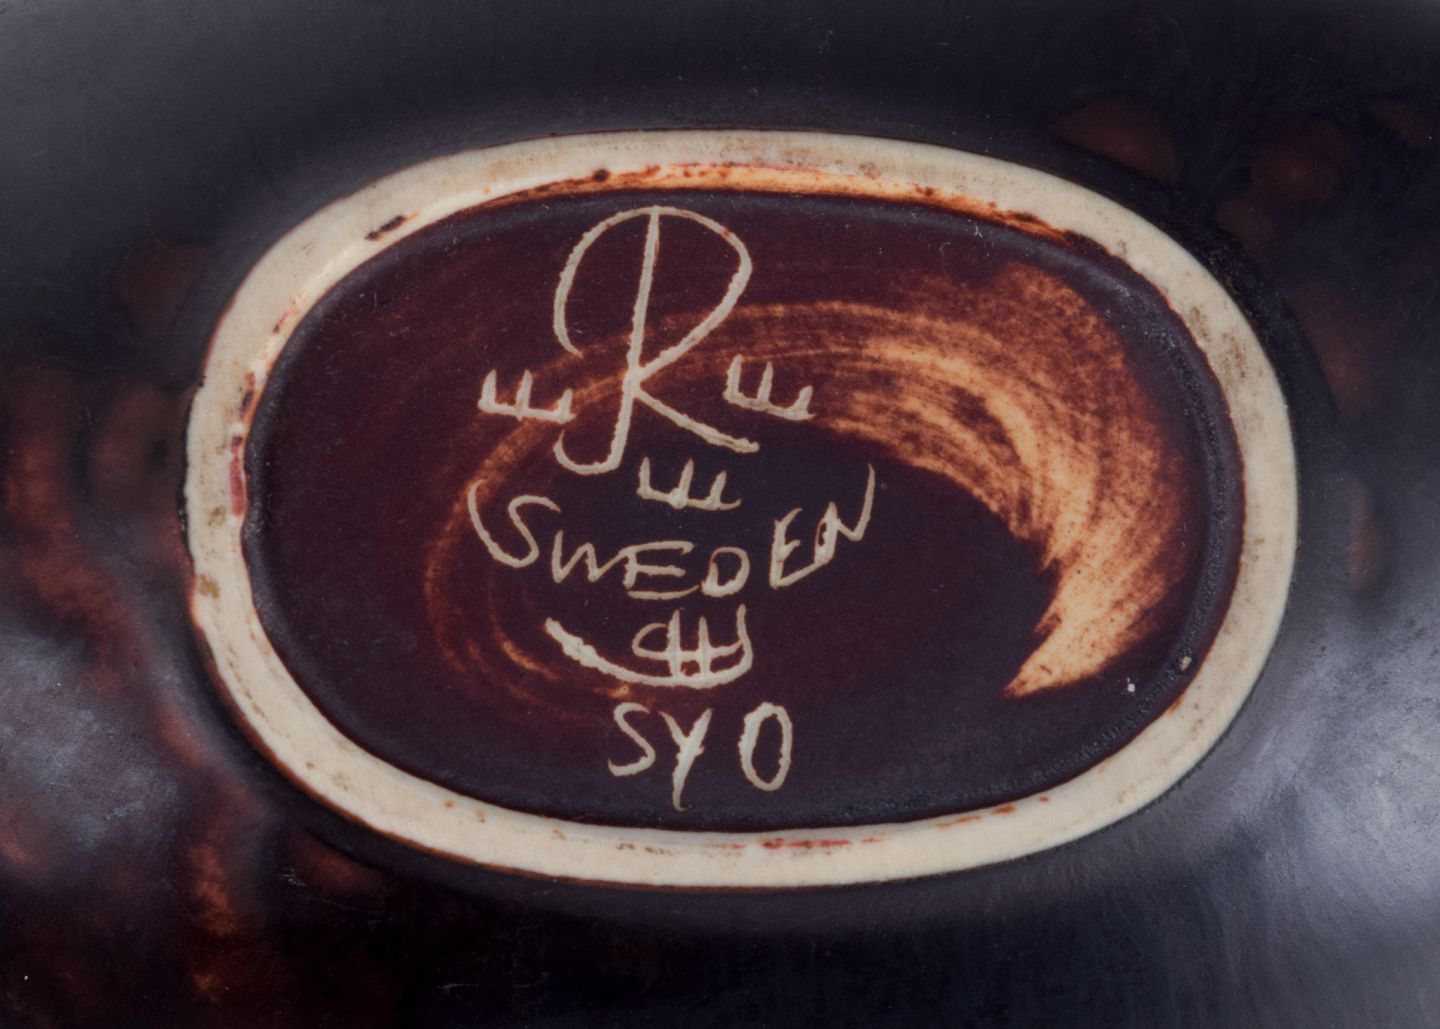 R
SWEDEN
SYO